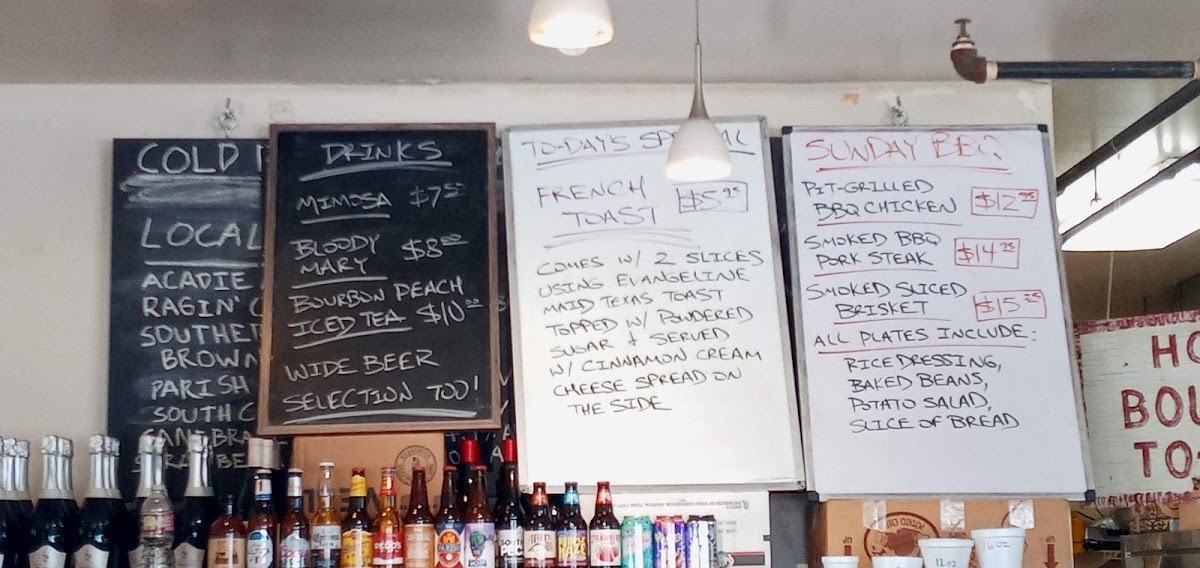 COLD
LOCAL
ACADIE
RAGIN'
SOUTHE
BROWN
PARISH
SOUTH C
CANEBRA
DRINKS
MIMOSA $7.50
BLOODY
MARY $8.00
BOURBON PEACH
ICED TEA $10.00
WIDE BEER
SELECTION TOO!
TO-DAY'S SPECIAL
FRENCH
TOAST $5.95
COMES W/ 2 SLICES
USING EVANGELINE
MAID TEXAS TOAST
TOPPED W/ POWDERED
SUGAR & SERVED
W/ CINNAMON CREAM
CHEESE SPREAD ON
THE SIDE
SUNDAY BBQ
PIT-GRILLED
BBQ CHICKEN $12.95
SMOKED BBQ
PORK STEAK $14.25
SMOKED SLICED
BRISKET $15.25
ALL PLATES INCLUDE:
RICE DRESSING,
BAKED BEANS,
POTATO SALAD,
SLICE OF BREAD
HO
BOU
TO-
UP
UP
12 OZ
16 OZ